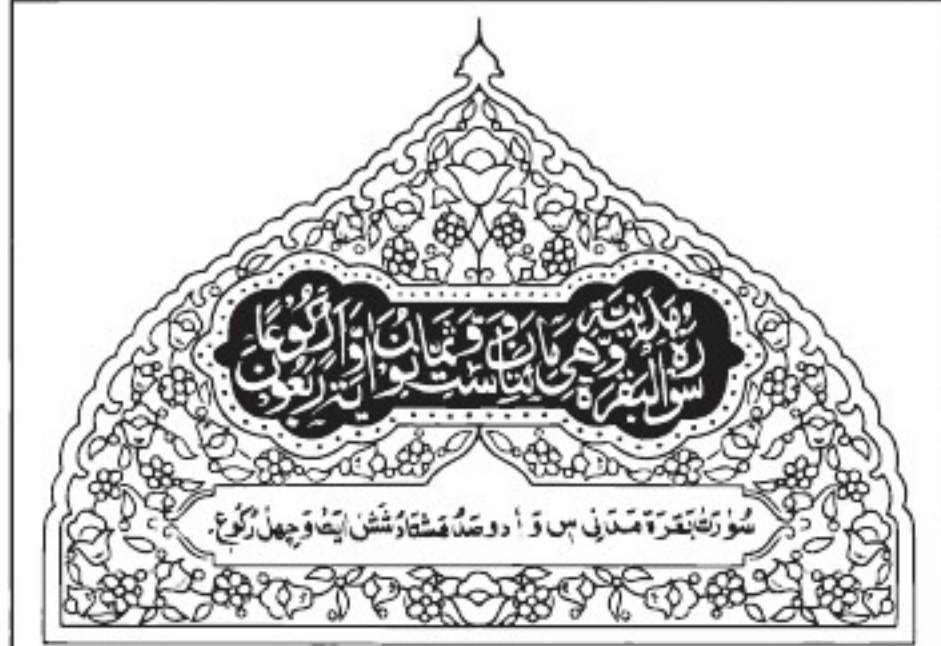 سُوْرَةُ الْبَقَرَةِ مَدَنِيَّةٌ وَّهِيَ مِائَتَانِ وَسِتٌّ وَّثَمَانُوْنَ اٰيَةً وَّاَرْبَعُوْنَ رُكُوْعًا
سُوْرَتْ بَقَرَةَ مَدَنِي سِ وَ أ دو صَدُ هَشْتَادُ شَشْ ايَتْ وَ چِهلْ رُكُوعْ.